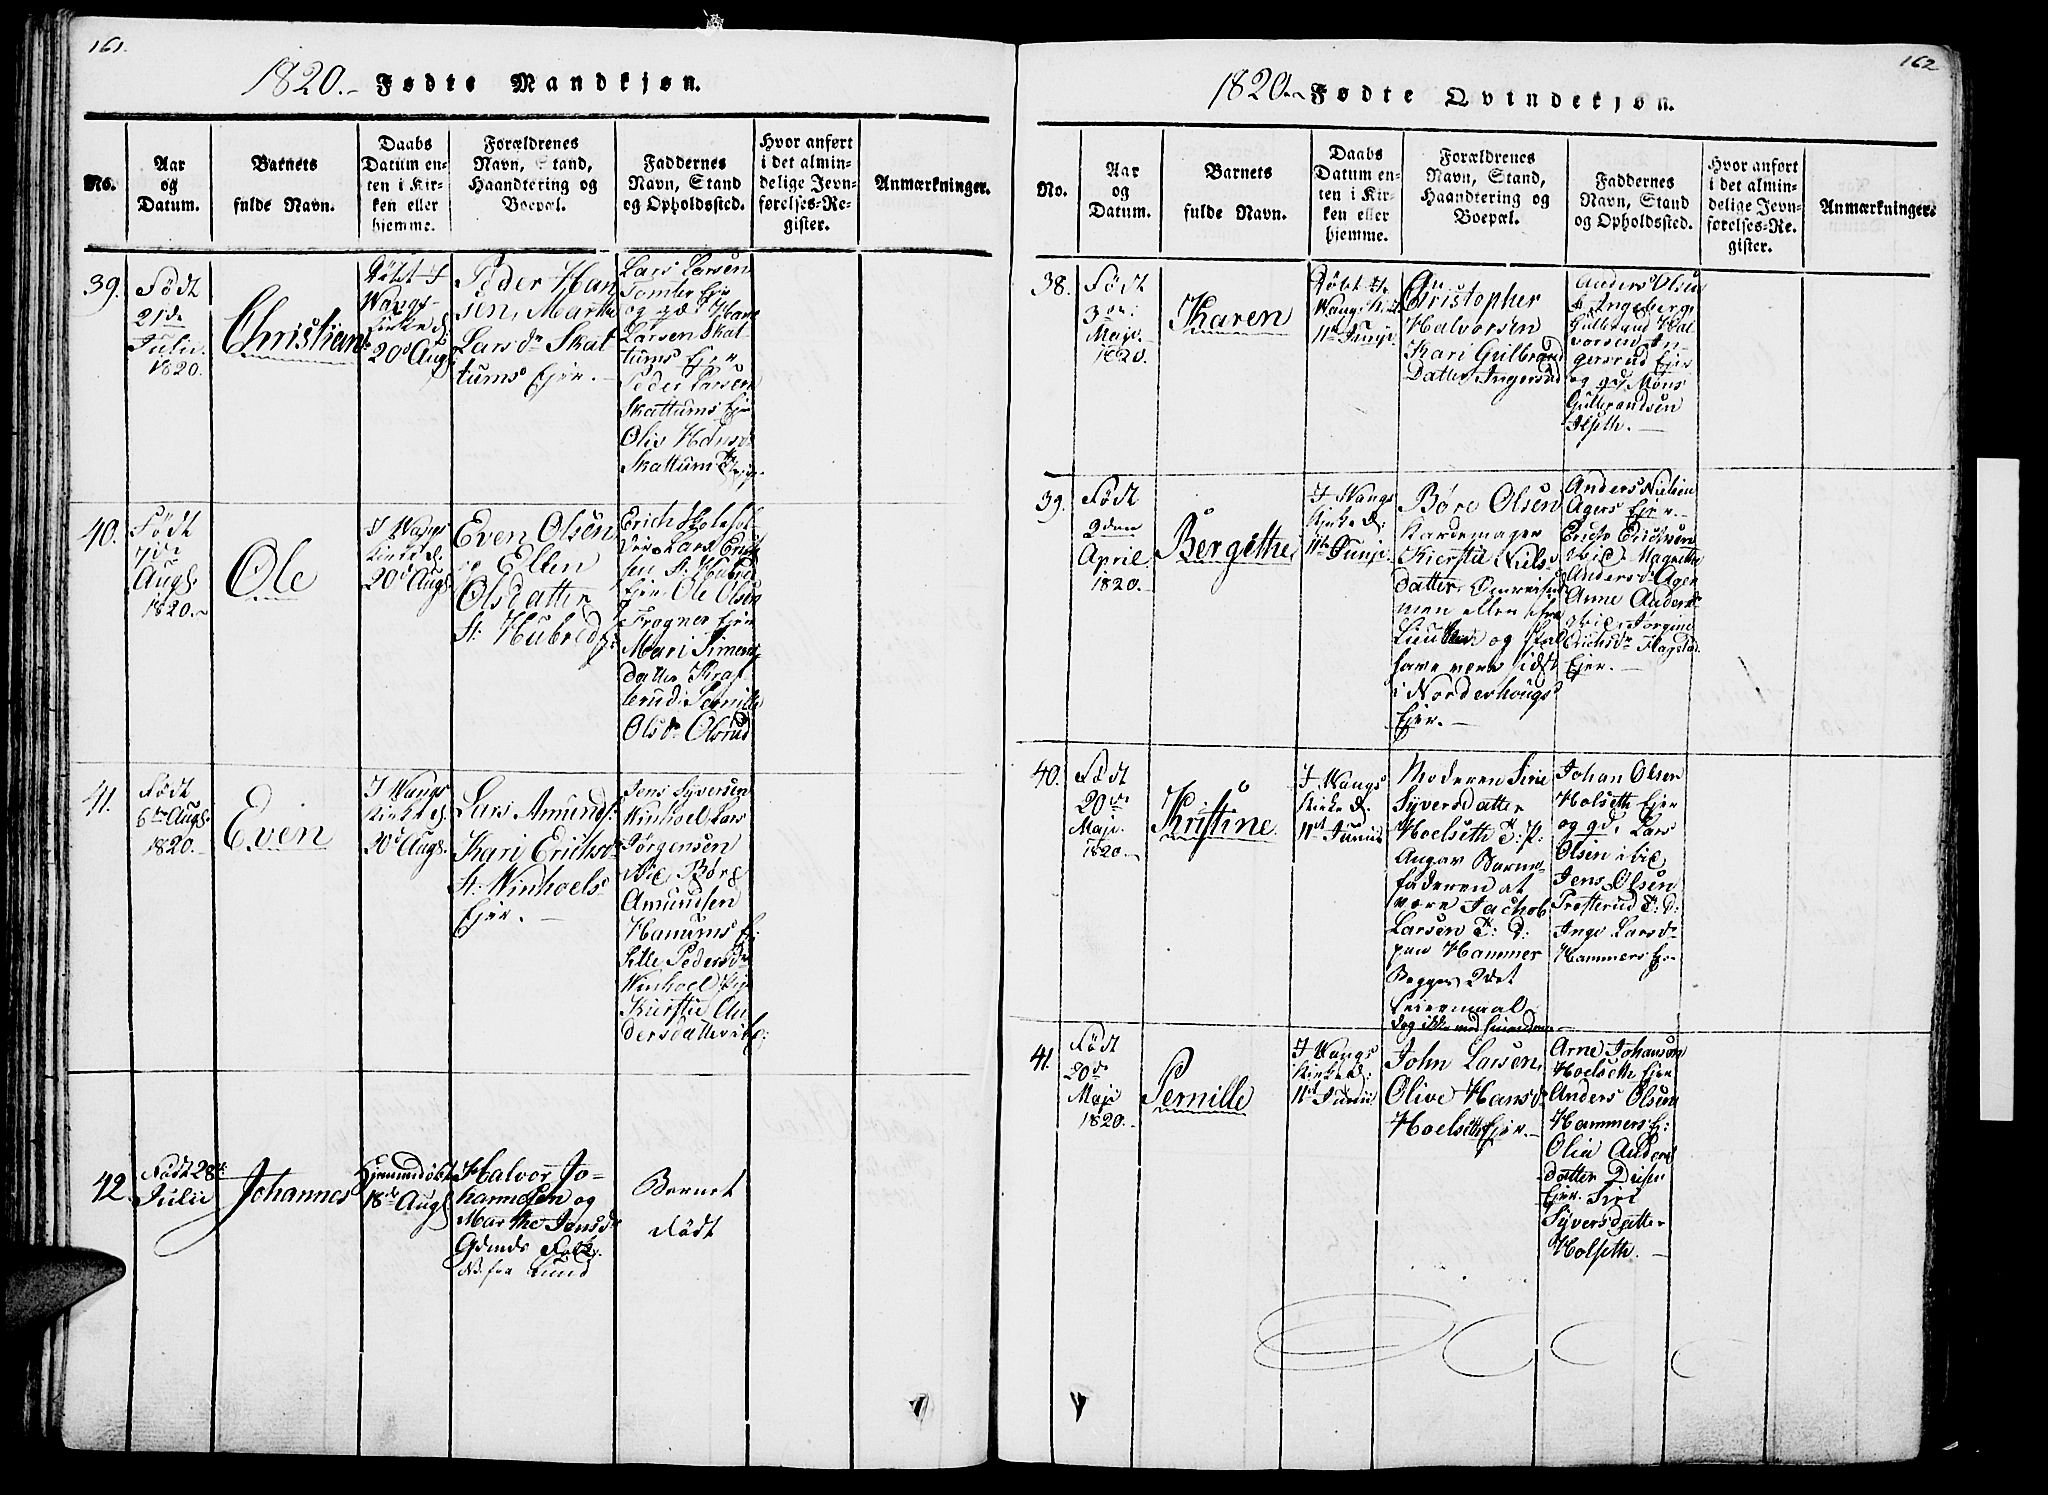 161.
1820.- Fødte Mandkjøn.
No.
Aar
og
Datum.
Barnets
fulde Navn.
Daabs
Datum en-
ten i Kir-
ken eller
hjemme.
Forældrenes
Navn, Stand,
Haandtering og
Boepæl.
Faddernes
Navn, Stand
og Opholdssted.
Hvor anført
i det almin-
delige Jevn-
førelses-Re-
gister.
Anmærkninger.
39.
Født
21de
Julii.
1820.
Christian
Døbt I
Wangs
Kirke d.
20d Augs.
Peder Han
sen, Marthe
Larsdr Skat
tums Ejer.
Lars Larsen
Tomter Ejer
og gd. Hans
Larsen Skat
tums Ejer
Peder Larsen
Skattums Ejer
Olia Hansdr
Skattum
40.
Født
7de
Augs.
1820.
Ole
I Wangs
Kirke d.
20d Augs.
Even Olsen
Ellen
Olsdatter
St: Hubred
Erich
Lars Erich
sen St. Hubred
Ejer, Ole Olsen
Frogner Ejer
Mari Simens
datter Kraf
terud. Pernille
Olsdr Olsrud
41.
Født
6te Augs.
1820.
Even
I Wangs
Kirke d.
20d Augs.
Lars Amunds:
Kari Erichsdr
St: Winhoels
Ejer.
Jens Syversen
Winhoel Lars
Jørgensen
ibid, Børe
Amundsen
Hanums Ej:
Sille Pedersdr
Winhoel
Kiersti An
dersdatter ibd:
42.
Født 28de
Julii
Johannes
Hjemmedøbt
18de Augs
Halvor Jo-
hannesen og
Marthe Jensdr
Folk
fra Lund
Barnet
Dødt
162
1820 Fødte Qvindekjøn.
No.
Aar
og
Datum.
Barnets
fulde Navn.
Daabs
Datum en-
ten i Kir-
ken eller
hjemme.
Forældrenes
Navn, Stand,
Haandtering og
Boepæl.
Faddernes
Navn, Stand
og Opholdssted.
Hvor anført
i det almin-
delige Jevn-
førelses-Re-
gister.
Anmærkninger.
38.
Født
3de
Maji.
1820.
Karen
Døbt i
Wangs K: d
11te Junii.
Christopher
Halvorsen
Kari Gulbrand
Datter Ingersrud
Anders Olsen
Ingeberg
Gulbrand Hal
vorsen In-
gersrud Ejer
og gd. Mons
Gulbrandsen
Ilseth.
39.
Født
9den
April
1820.
Bergithe
I Wangs
Kirke d:
11te Junii.
Børe Olsen
Kardemager
Kiersti Niels
datter
men eller fra
og skal
have været sidst
i Norderhougs
Ejer.
Anders Nielsen
Agers Ejer
Erich Erichsen
ibid, Magrethe
Andersdr Ager
Anne Andersdr
ibid, Jorgine
Erichsdr Flagstad
Ejer.
40.
Født
20de
Maji.
1820.
Kristine.
I Wangs
Kirke d.
11te Junii
Moderen Siri
Syversdatter
Hoelseth T: P:
Angav Barne-
faderen at
være Jachob
Larsen T: D:
paa Hammer
Begges 2det
Leiermaal
dog ikke med hinanden
Johan Olsen
Holseth Ejer
og gd. Lars
Olsen ibid,
Jens Olsen
Prosterud T: d:
Inge Larsdr
Hammers Ejer
41.
Født
20de
Maji
1820.
Pernille
I Wangs
Kirke d:
11te Junii
John Larsen,
Olive Hansdr
Hoelseth Ejer.
Arne Johansen
Hoelseth Ejer
Anders Olsen
Hammers Ej:
Olia Anders
datter Disen
Ejer. Siri
Syversdatter
Holseth.